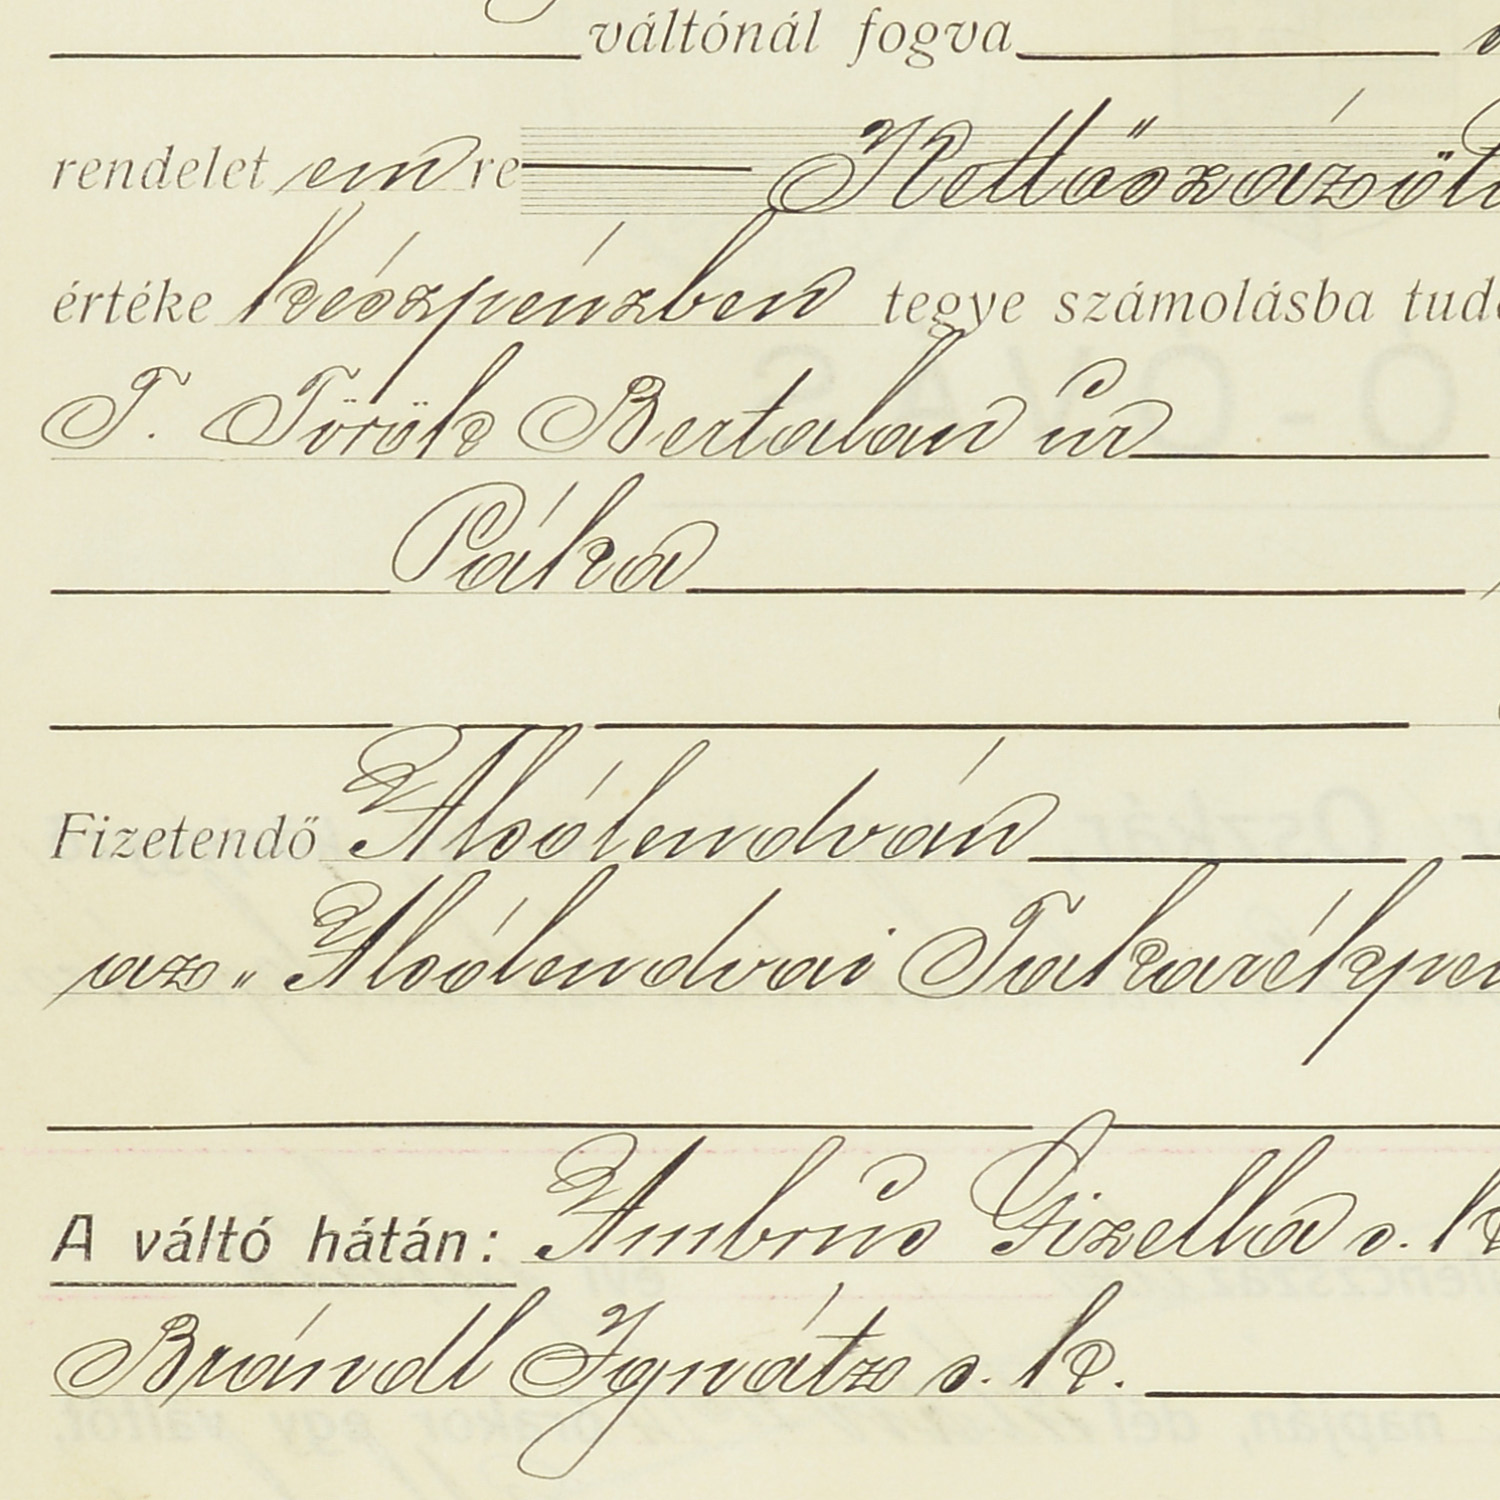 váltónál fogva
rendelet em re Kettőszázöt
értéke készpénzben tegye számolásba tud
T. Török Bertalan úr
Páka
Fizetendő Alsólendván
az „Alsólendvai Takarékpén
A váltó hátán: Ambrus Gizella s. k
Brándl Ignátz s. k.